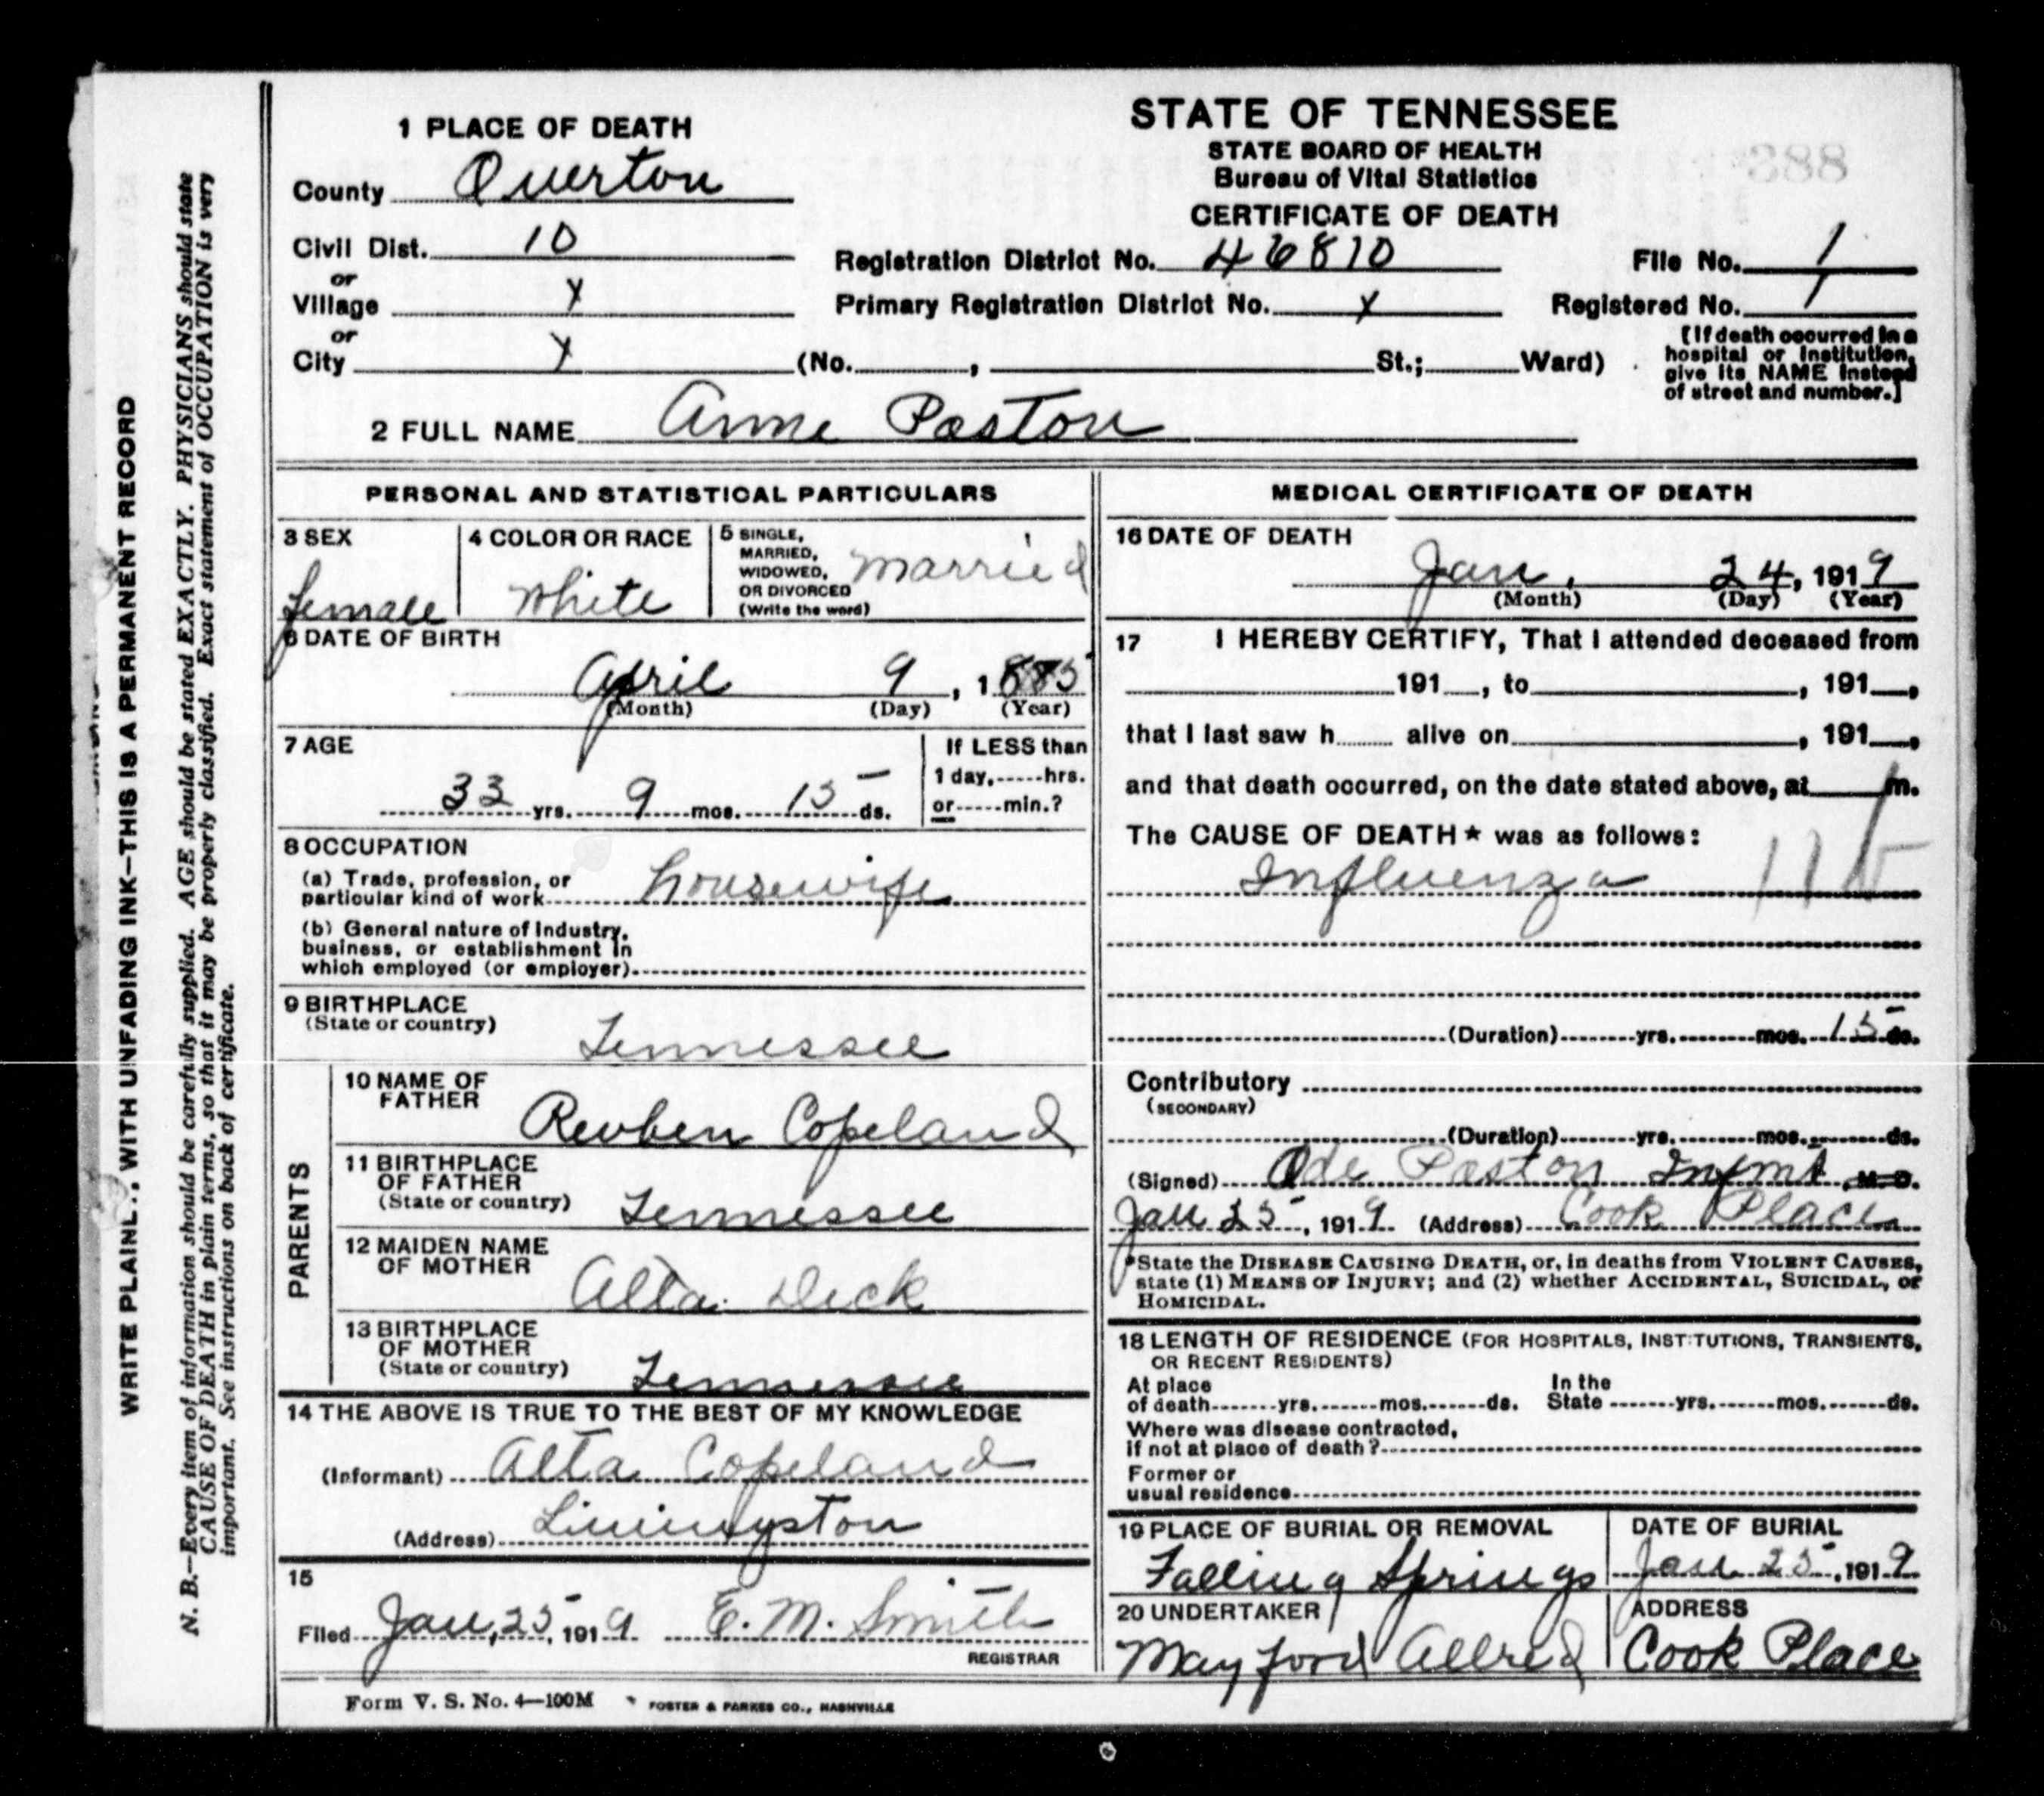 1 PLACE OF DEATH
County Overton
Civil Dist. 10
or
Village X
or
City X (No. , St.; Ward)
STATE OF TENNESSEE
STATE BOARD OF HEALTH
Bureau of Vital Statistics
CERTIFICATE OF DEATH
388
Registration District No. 46810
File No. 1
Primary Registration District No. X
Registered No. 1
[If death occurred in a
hospital or institution,
give its NAME instead
of street and number.]
2 FULL NAME Anne Paston
PERSONAL AND STATISTICAL PARTICULARS
3 SEX
female
4 COLOR OR RACE
White
5 SINGLE,
MARRIED,
WIDOWED,
OR DIVORCED
(Write the word)
married
6 DATE OF BIRTH
April 9, 1885
(Month) (Day) (Year)
7 AGE
33 yrs. 9 mos. 15 ds.
If LESS than
1 day, hrs.
or min.?
8 OCCUPATION
(a) Trade, profession, or
particular kind of work housewife
(b) General nature of Industry,
business, or establishment in
which employed (or employer)
9 BIRTHPLACE
(State or country)
Tennessee
PARENTS
10 NAME OF
FATHER
Reuben Copeland
11 BIRTHPLACE
OF FATHER
(State or country)
Tennessee
12 MAIDEN NAME
OF MOTHER
Alta Deck
13 BIRTHPLACE
OF MOTHER
(State or country)
Tennessee
14 THE ABOVE IS TRUE TO THE BEST OF MY KNOWLEDGE
(Informant) Alta Copeland
(Address) Livingston
15
Filed Jan, 25, 1919 E. M. Smith
REGISTRAR
Form V. S. No. 4—100M
FOSTER & PARKES CO., NASHVILLE
MEDICAL CERTIFICATE OF DEATH
16 DATE OF DEATH
Jan, 24, 1919
(Month) (Day) (Year)
17 I HEREBY CERTIFY, That I attended deceased from
191 , to , 191 ,
that I last saw h alive on , 191 ,
and that death occurred, on the date stated above, at m.
The CAUSE OF DEATH* was as follows:
Influenza 11b
(Duration) yrs. mos. 15 ds.
Contributory
(SECONDARY)
(Duration) yrs. mos. ds.
(Signed) Ode Paston Infmt, M. D.
Jan 25, 1919 (Address) Cook Place
*State the DISEASE CAUSING DEATH, or, in deaths from VIOLENT CAUSES,
state (1) MEANS OF INJURY; and (2) whether ACCIDENTAL, SUICIDAL, or
HOMICIDAL.
18 LENGTH OF RESIDENCE (FOR HOSPITALS, INSTITUTIONS, TRANSIENTS,
OR RECENT RESIDENTS)
At place
of death yrs. mos. ds.
In the
State yrs. mos. ds.
Where was disease contracted,
if not at place of death?
Former or
usual residence
19 PLACE OF BURIAL OR REMOVAL
Falling Springs
DATE OF BURIAL
Jan 25, 1919
20 UNDERTAKER
Mayford Allred
ADDRESS
Cook Place
WRITE PLAINL., WITH UNFADING INK—THIS IS A PERMANENT RECORD
N. B.—Every item of information should be carefully supplied. AGE should be stated EXACTLY. PHYSICIANS should state
CAUSE OF DEATH in plain terms, so that it may be properly classified. Exact statement of OCCUPATION is very
important. See instructions on back of certificate.